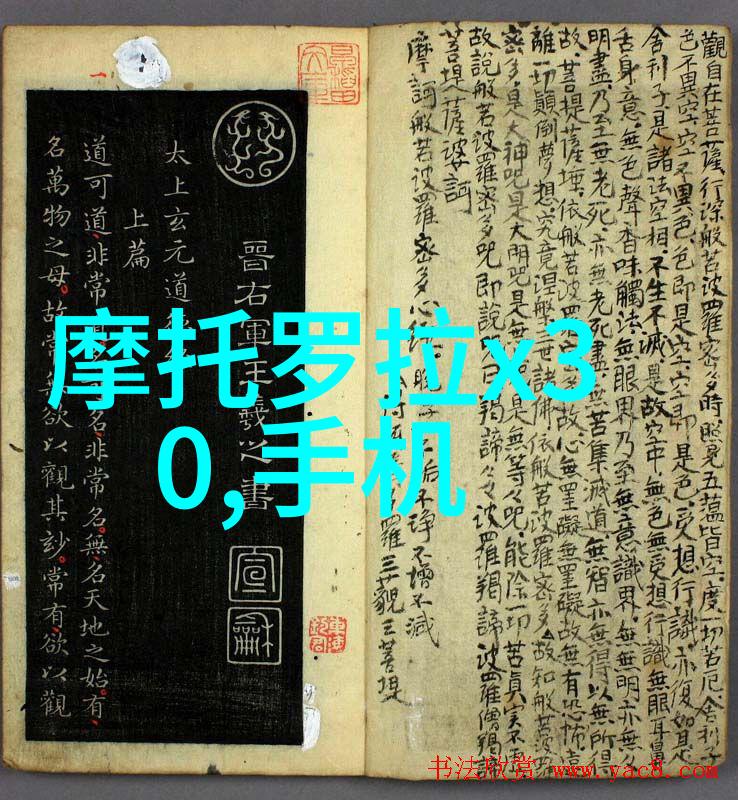 摩托罗拉x3
0,手机
觀自在菩薩行深般若波羅密多時照見五蘊皆空度一切苦厄舍利子
色不異空空不異色色即是空空即是色受想行識亦復如是
舍利子是諸法空相不生不滅是故空中無色無受想行識無眼耳鼻
舌身意無色聲香味觸法無眼界乃至無意識界無無明亦無
明盡乃至無老死亦無老死盡無苦集滅道無智亦無得以無所得
故菩提薩埵依般若波羅密多故心無罣礙無罣礙故無有恐怖遠
離一切顛倒夢想究竟涅槃三世諸佛依般若波羅密多故知般若波羅
密多是大神咒是大明咒是無是無等々咒能除一切苦真實不
故說般若波羅密多咒即說曰羯諦々々波羅羯諦波羅僧羯諦
菩提薩婆訶
摩訶般若波羅密多心經
垢不淨不增不減
羅三藐三菩提
晉右軍王羲之書
宣和
太上玄元道
上篇
道可道非常名非常名無名天地之始有
名萬物之母故常無欲以觀其妙常有欲以觀
书法欣赏 www.yac8.com